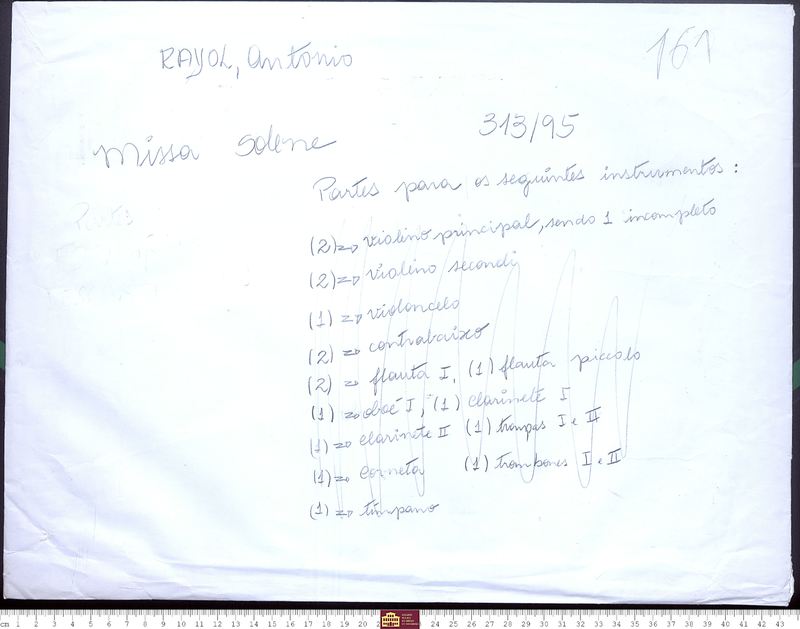 RAYOL, Antonio
161
Missa Solene
313/95
Partes para os seguintes instrumentos:
Partes
(2) => violino principal, sendo 1 incompleto
(2) => violino secondi
(1) => violoncelo
(2) => contrabaixo
(2) => flauta I, (1) flauta piccolo
(1) => oboé I, (1) clarinete I
(1) => clarinete II (1) trompas I e II
(1) => corneta (1) trombones I e II
(1) => tímpano
cm 1 2 3 4 5 6 7 8 9 10 11 12 13 14 15 16 17 18 19 20 24 25 26 27 28 29 30 31 32 33 34 35 36 37 38 39 40 41 42 43